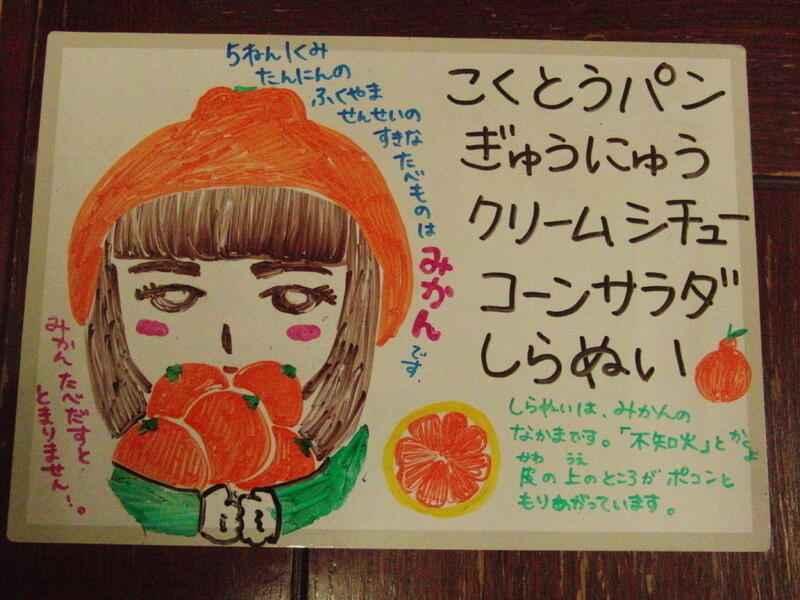 5ねん1くみ
たんにんの
ふくやま
せんせいの
すきな
たべものは
みかんです。
みかんたべだすと
とまりません…。
こくとうパン
ぎゅうにゅう
クリームシチュー
コーンサラダ
しらぬい
しらぬいは、みかんの
なかまです。「不知火」とかくよ
かわ うえ
皮の上のところがポコンと
もりあがっています。